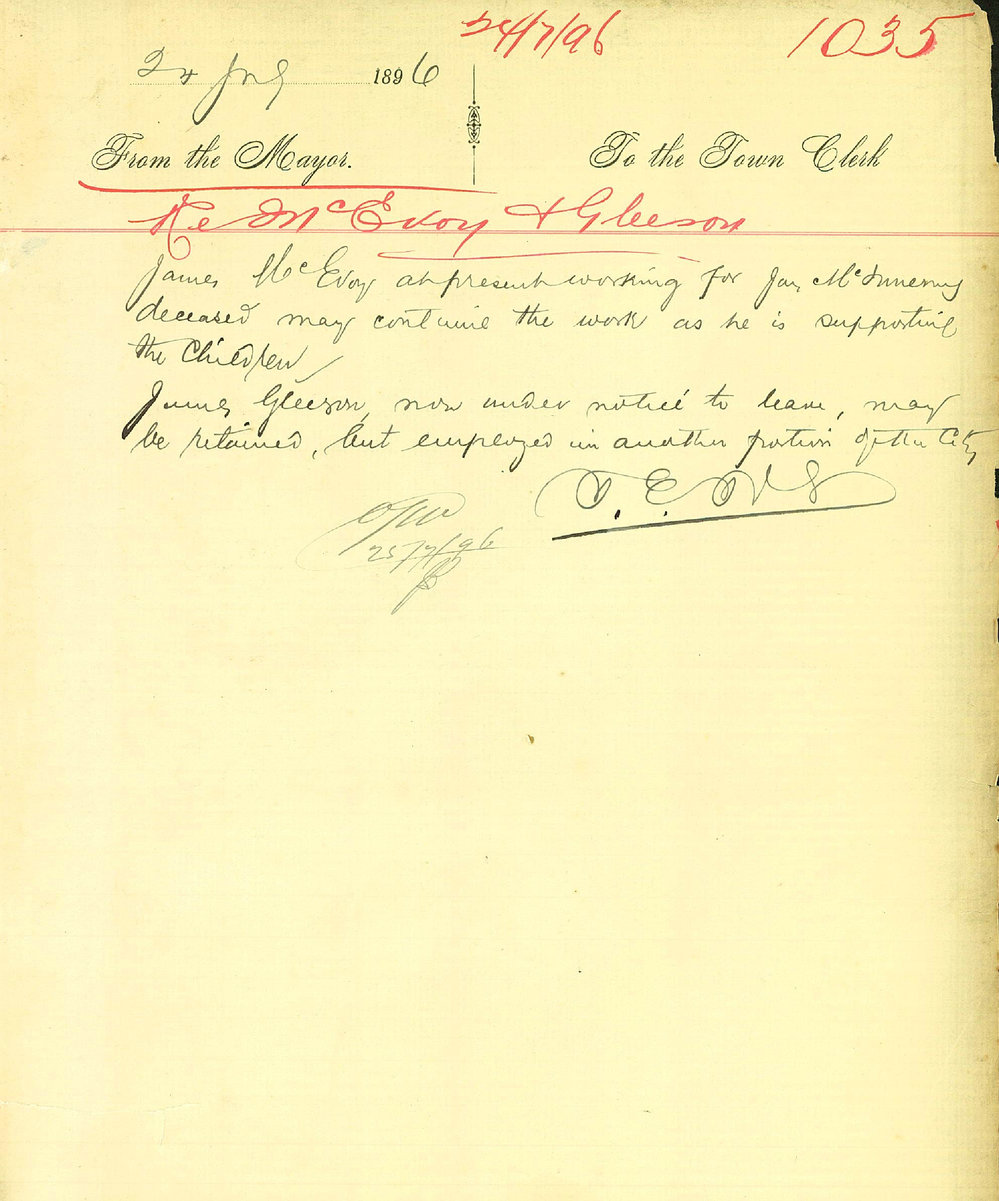 24/7/96
1035
24 July 1896
From the Mayor.
To the Town Clerk
Re McEvoy & Gleeson
James McEvoy at present working for Jas McInnerny
deceased may continue the work as he is supporting
the children
James Gleeson, now under notice to leave, may
be retained, but employed in another portion of the City
25/7/96